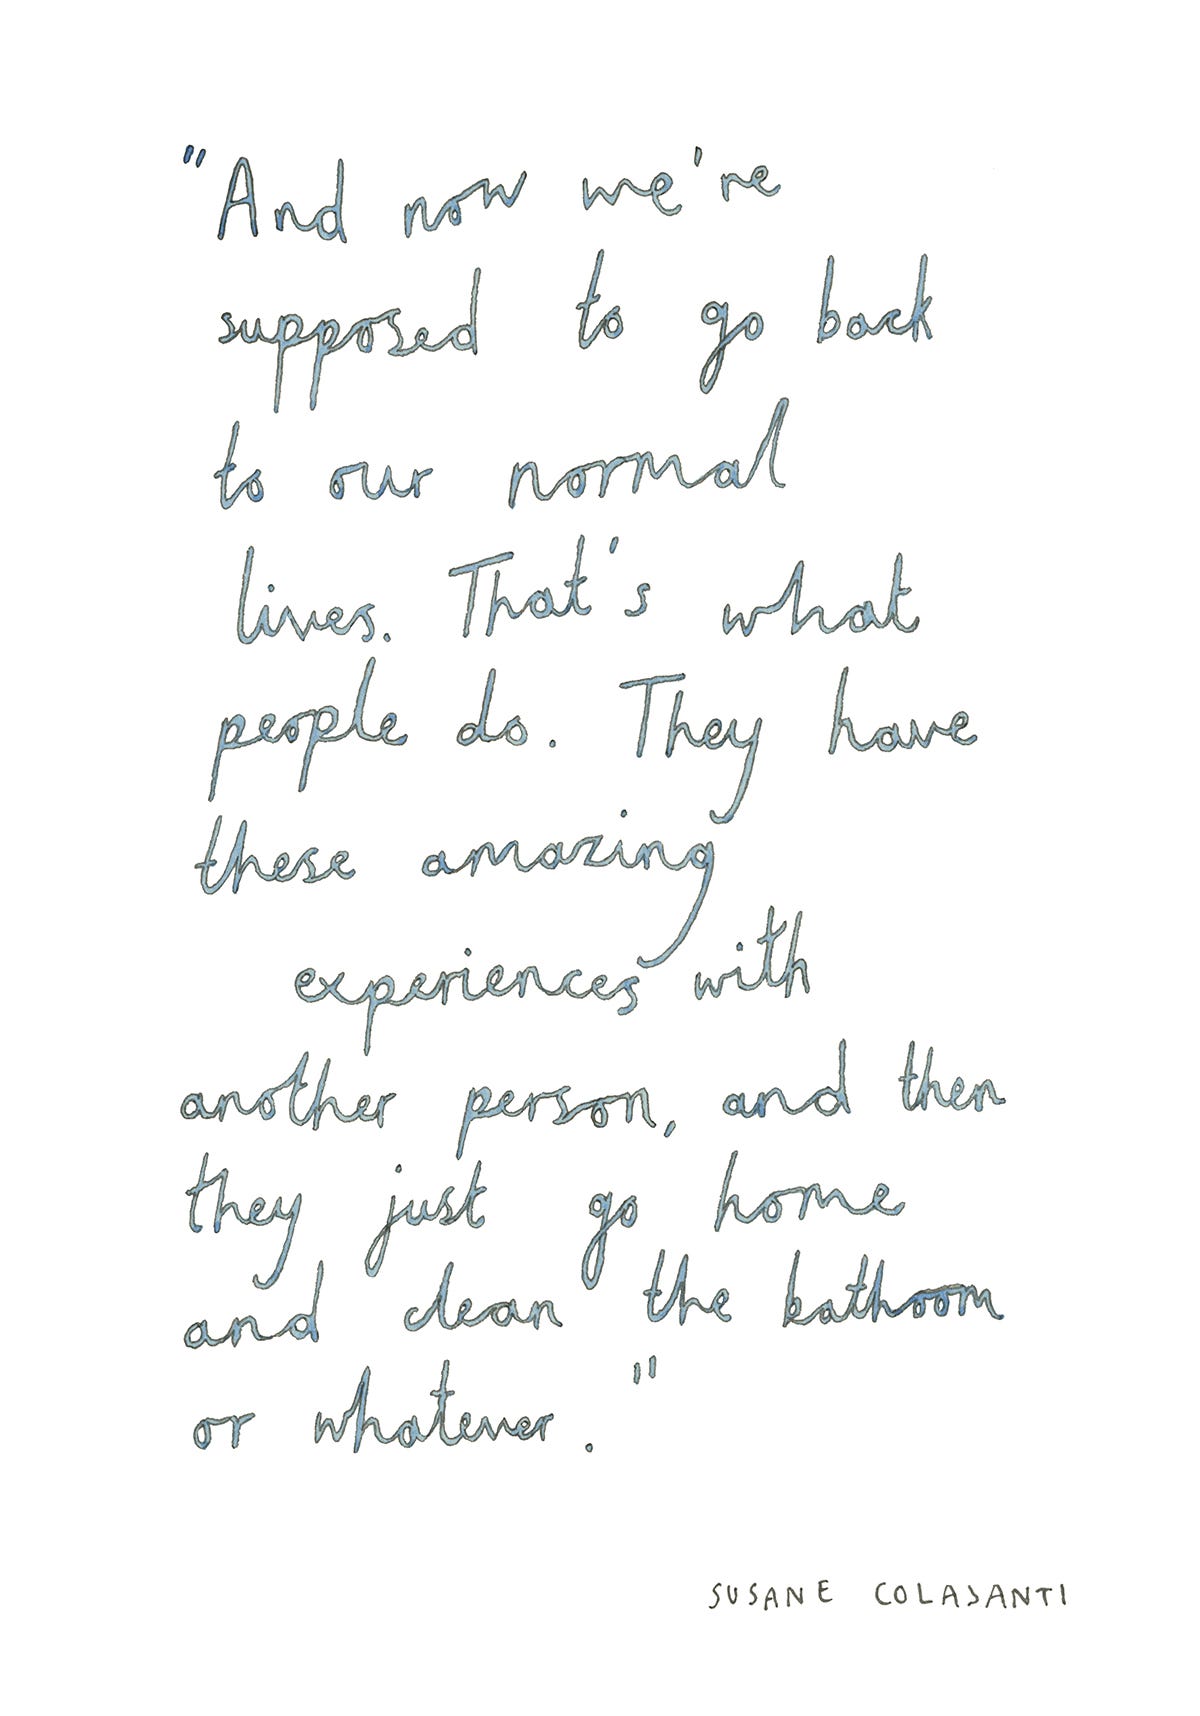 "And now we're
supposed to go back
to our normal
lives. That's what
people do. They have
these amazing
experiences with
another person, and then
they just go home
and clean the bathoom
or whatever."
SUSANE COLASANTI